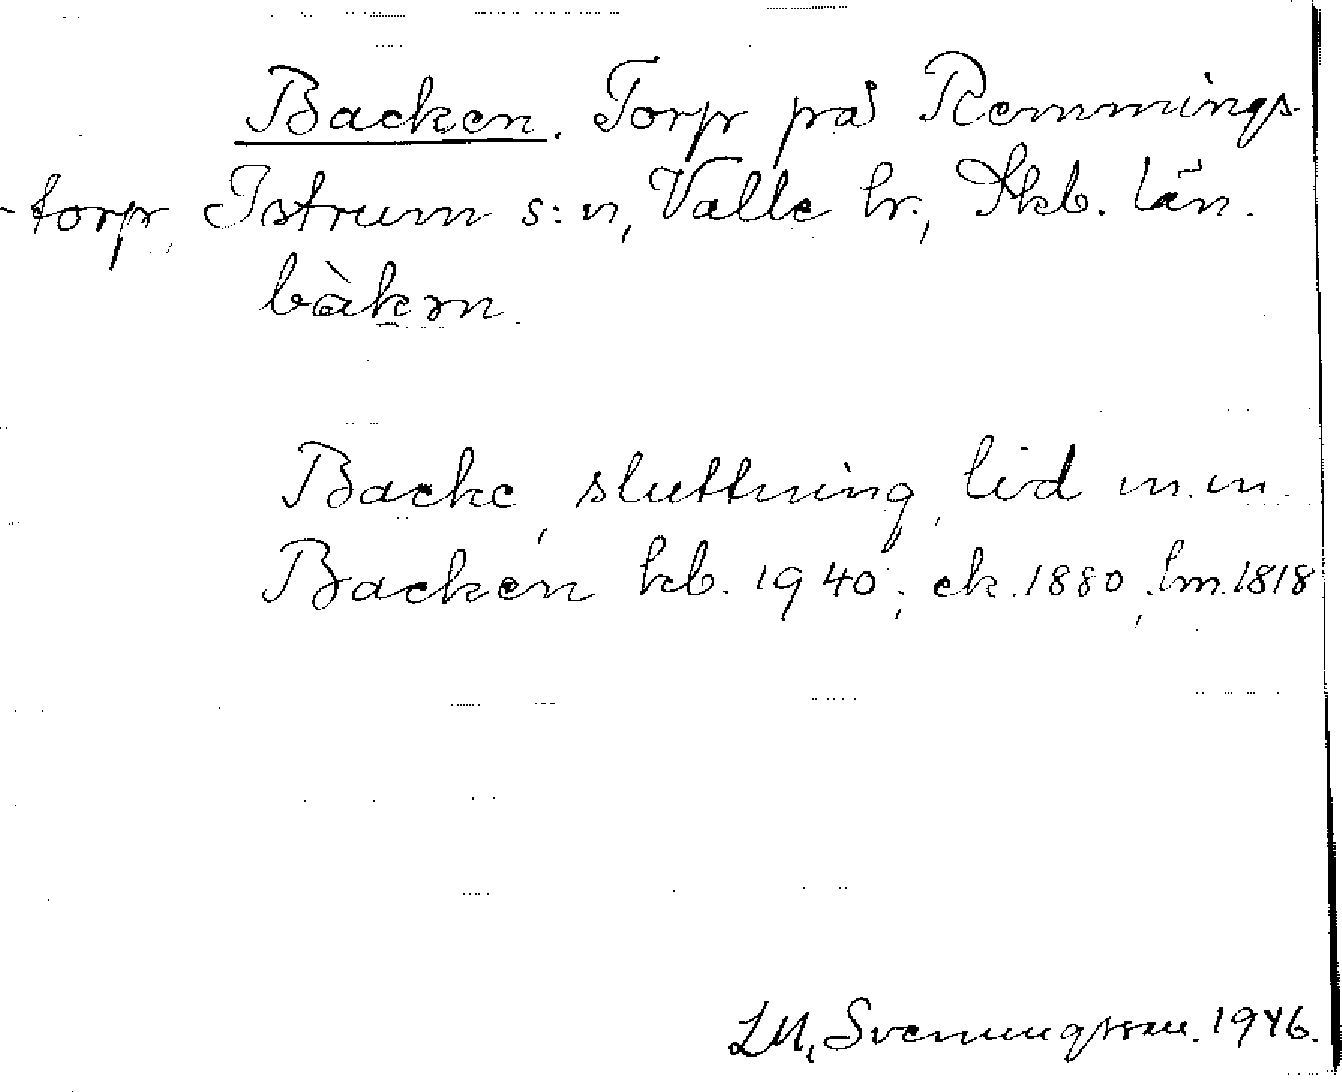 Backen. Torp på Remmings-
-torp, Istrum s:n, Valle hr., Skb. län.
bàkən.
Backe, sluttning, lid m.m.
Backen kb. 1940; ek. 1880; lm. 1818
Sveningsson. 1946.